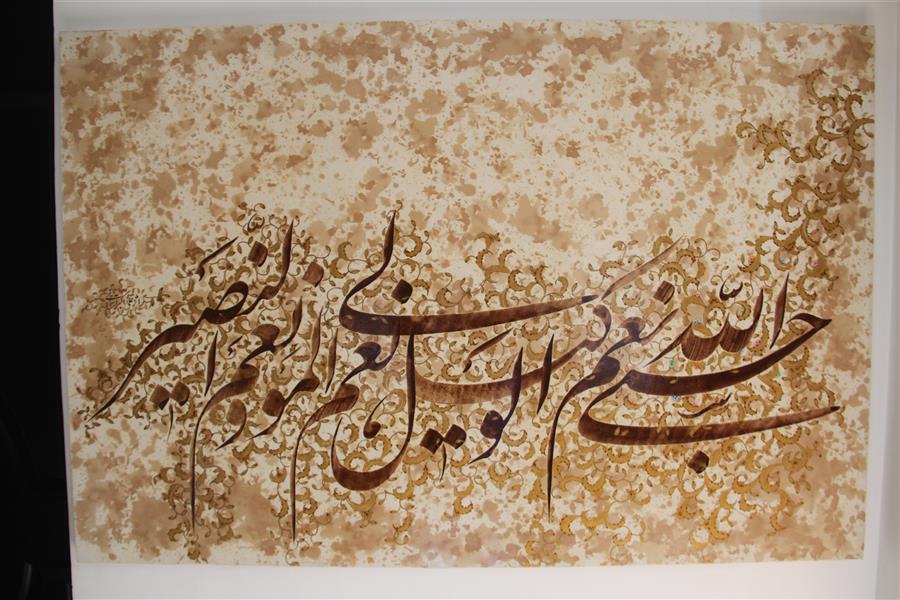 حسبی الله نعم الوکیل نعم المولی و نعم النصیر